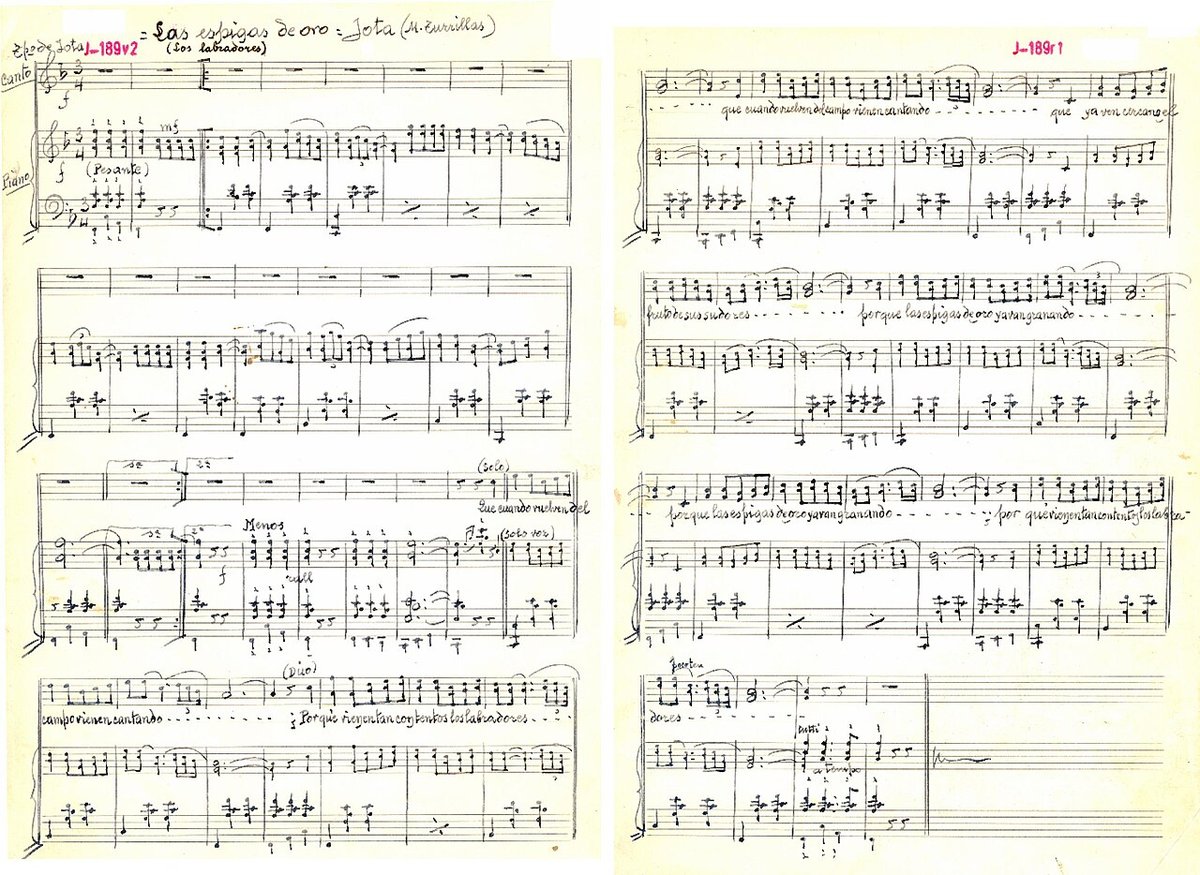 = Las espigas de oro = Jota (M. Turrillas)
Tpo de Jota J-189v2 (Los labradores)
Canto
f
mf
Piano
f (Pesante)
1ª 2ª
(Solo)
Que cuando vuelven del
1ª 2ª Menos
(Solo voz)
f rall
(Dúo)
campo vienen cantando - - - - - - ¿Porque vienen tan contentos los labradores - - - -
J-189r1
- - - - - - que cuando vuelven del campo vienen cantando - - - - - - que ya ven cercano el
fruto de sus sudores - - - - - - porque las espigas de oro ya van granando - - - - - -
- - porque las espigas de oro ya van granando - - - - - - ¿por qué vienen tan contentos los labra-
dores - - - - - -
tutti
a tempo